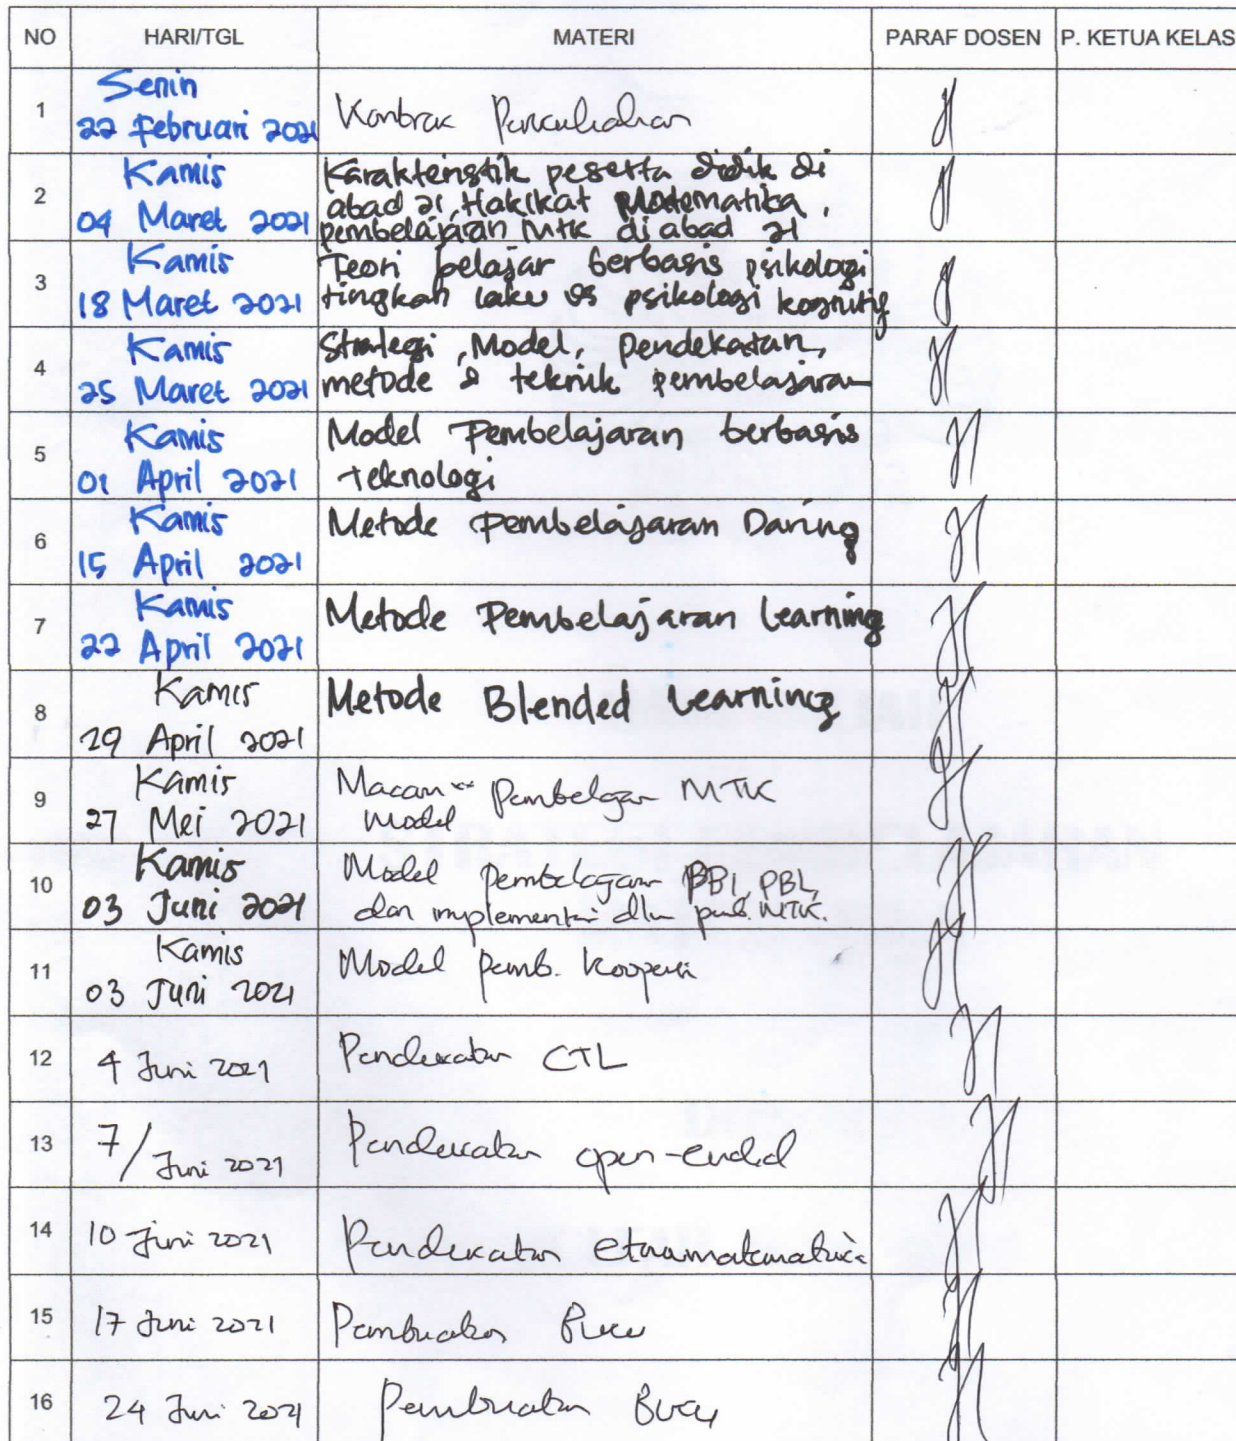 NO HARI/TGL MATERI PARAF DOSEN P. KETUA KELAS
1
Senin
22 februari 2021
Kontrak Perkuliahan
2
Kamis
04 Maret 2021
Karakteristik peserta didik di
abad 21, Hakikat Matematika,
pembelajaran mtk di abad 21
3
Kamis
18 Maret 2021
Teori belajar berbasis psikologi
tingkah laku vs psikologi kognitif
4
Kamis
25 Maret 2021
Strategi, Model, pendekatan,
metode & teknik pembelajaran
5
Kamis
01 April 2021
Model Pembelajaran berbasis
teknologi
6
Kamis
15 April 2021
Metode Pembelajaran Daring
7
Kamis
22 April 2021
Metode Pembelajaran Learning
8
Kamis
29 April 2021
Metode Blended Learning
9
Kamis
27 Mei 2021
Macam Pembelajar MTK
Model
10
Kamis
03 Juni 2021
Model pembelajaran PBL,
dan implementasi dlm MTK.
11
Kamis
03 Juni 2021
Model pemb. Kooperi
12
4 Juni 2021
Pendekatan CTL
13
7/Juni 2021
Pendekatan open-ended
14
10 Juni 2021
Pendekatan etnomatematika
15
17 Juni 2021
Pembuatan Buku
16
24 Juni 2021
Pembuatan Buku